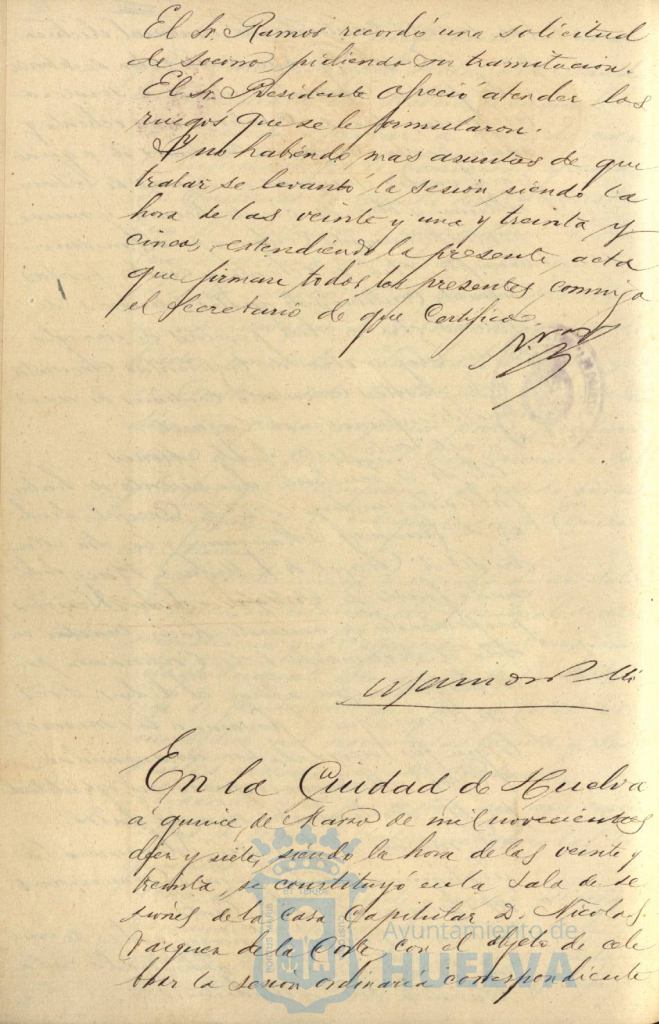 El Sr. Ramos recordó una solicitud
de socorro, pidiendo su tramitación.
El Sr. Presidente ofreció atender los
ruegos que se le formularon.
Y no habiendo mas asuntos de que
tratar se levantó la sesión siendo la
hora de las veinte y una y treinta y
cinco, extendiendo la presente acta
que firman todos los presentes, conmigo
el Secretario de que Certifico.
En la Ciudad de Huelva
a quince de Marzo de mil novecientos
diez y siete, siendo la hora de las veinte y
treinta, se constituyó en la Sala de se
siones de la Casa Capitular D. Nicolas
Vazquez de la Corte con el objeto de cele
brar la sesión ordinaria correspondiente
Ayuntamiento de
HUELVA